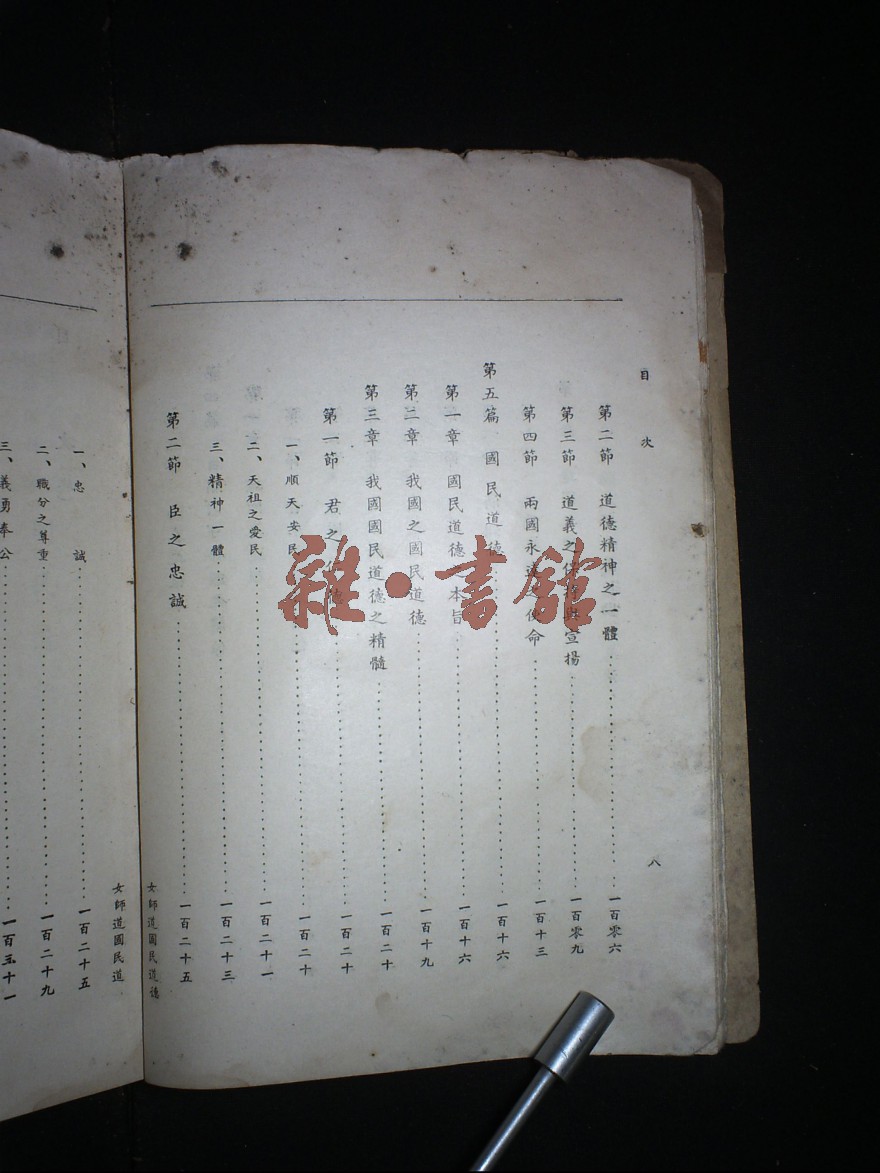 目次
八
第二節 道德精神之一體……一百零六
第三節 道義之 宣揚……一百零九
第四節 兩國永 使命……一百十三
第五篇 國民道德……一百十六
第一章 國民道德之本旨……一百十六
第二章 我國之國民道德……一百十九
第三章 我國國民道德之精髓……一百二十
第一節 君之 德……一百二十
一、順天安民……一百二十
二、天祖之愛民……一百二十一
三、精神一體……一百二十三
第二節 臣之忠誠……一百二十五
女師道國民道德
一、忠 誠……一百二十五
二、職分之尊重……一百二十九
三、義勇奉公……一百三十一
女師道國民道
雜·書館